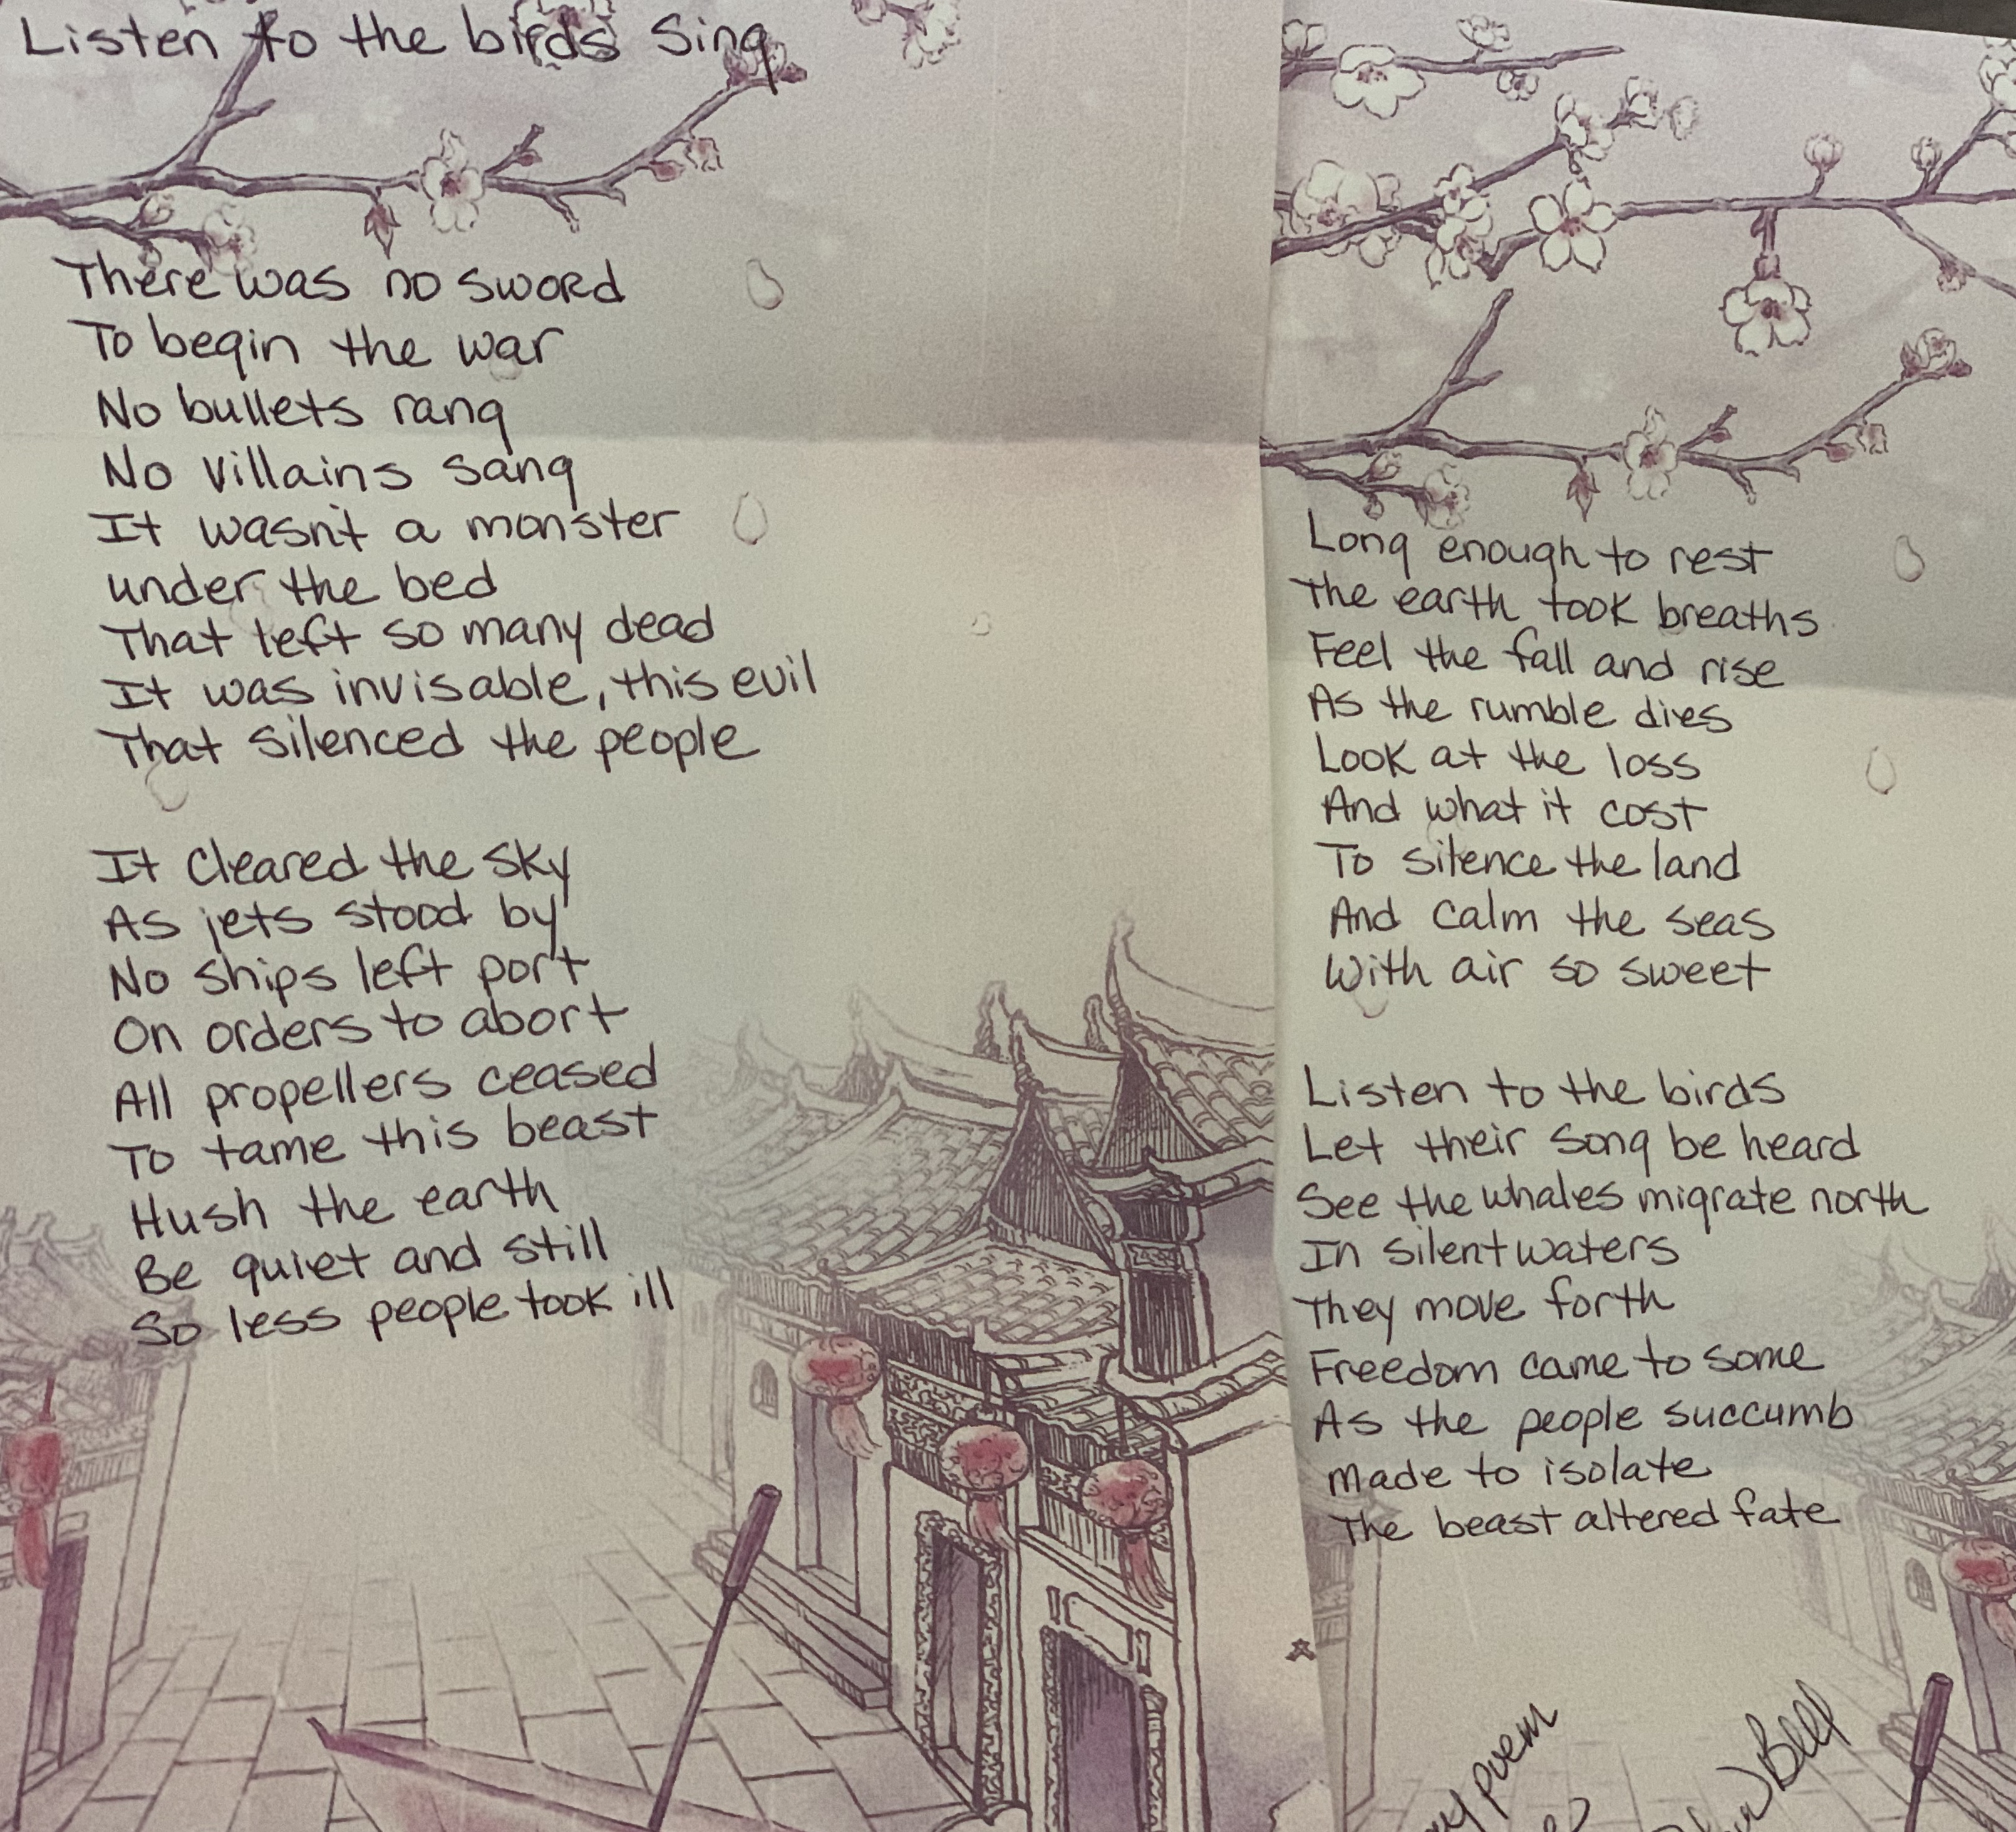 Listen to the birds sing
There was no sword
To begin the war
No bullets rang
No villains sang
It wasn't a monster
under the bed
That left so many dead
It was invisable, this evil
That silenced the people
It cleared the sky
As jets stood by
No ships left port
On orders to abort
All propellers ceased
To tame this beast
Hush the earth
Be quiet and still
So less people took ill
Long enough to rest
The earth took breaths
Feel the fall and rise
As the rumble dies
Look at the loss
And what it cost
To silence the land
And calm the seas
With air so sweet
Listen to the birds
Let their song be heard
See the whales migrate north
In silent waters
They move forth
Freedom came to some
As the people succumb
Made to isolate
The beast altered fate
poem